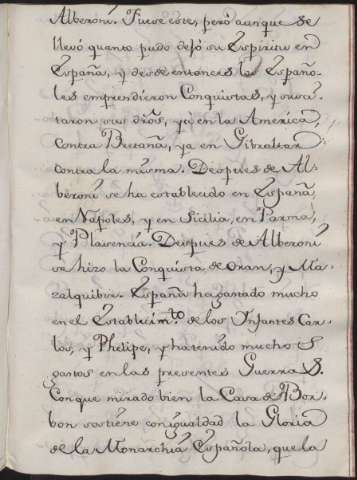 Alberoni. Fuese éste, pero aunque se
llevó quanto pudo dejó su Espiritu en
España, y desde entonces los Españo-
les emprendieron Conquistas, y
taron sus dros, ya en la America,
contra Bretaña, ya en Gibraltar
contra la misma. Despues de Al-
beroni se ha establecido en España,
en Napoles, y en Sicilia, en Parma,
y Plasencia. Despues de Alberoni
se hizo la Conquista de Oran, y Ma-
zalquibir. España ha gastado mucho
en el Establecim.to de los Ynfantes Car-
los, y Phelipe, y ha tenido muchos
gastos en las presentes Guerras.
Conque mirado bien la Casa de Bor-
bon sostiene con igualdad la Gloria
de la Monarchia Española, que la